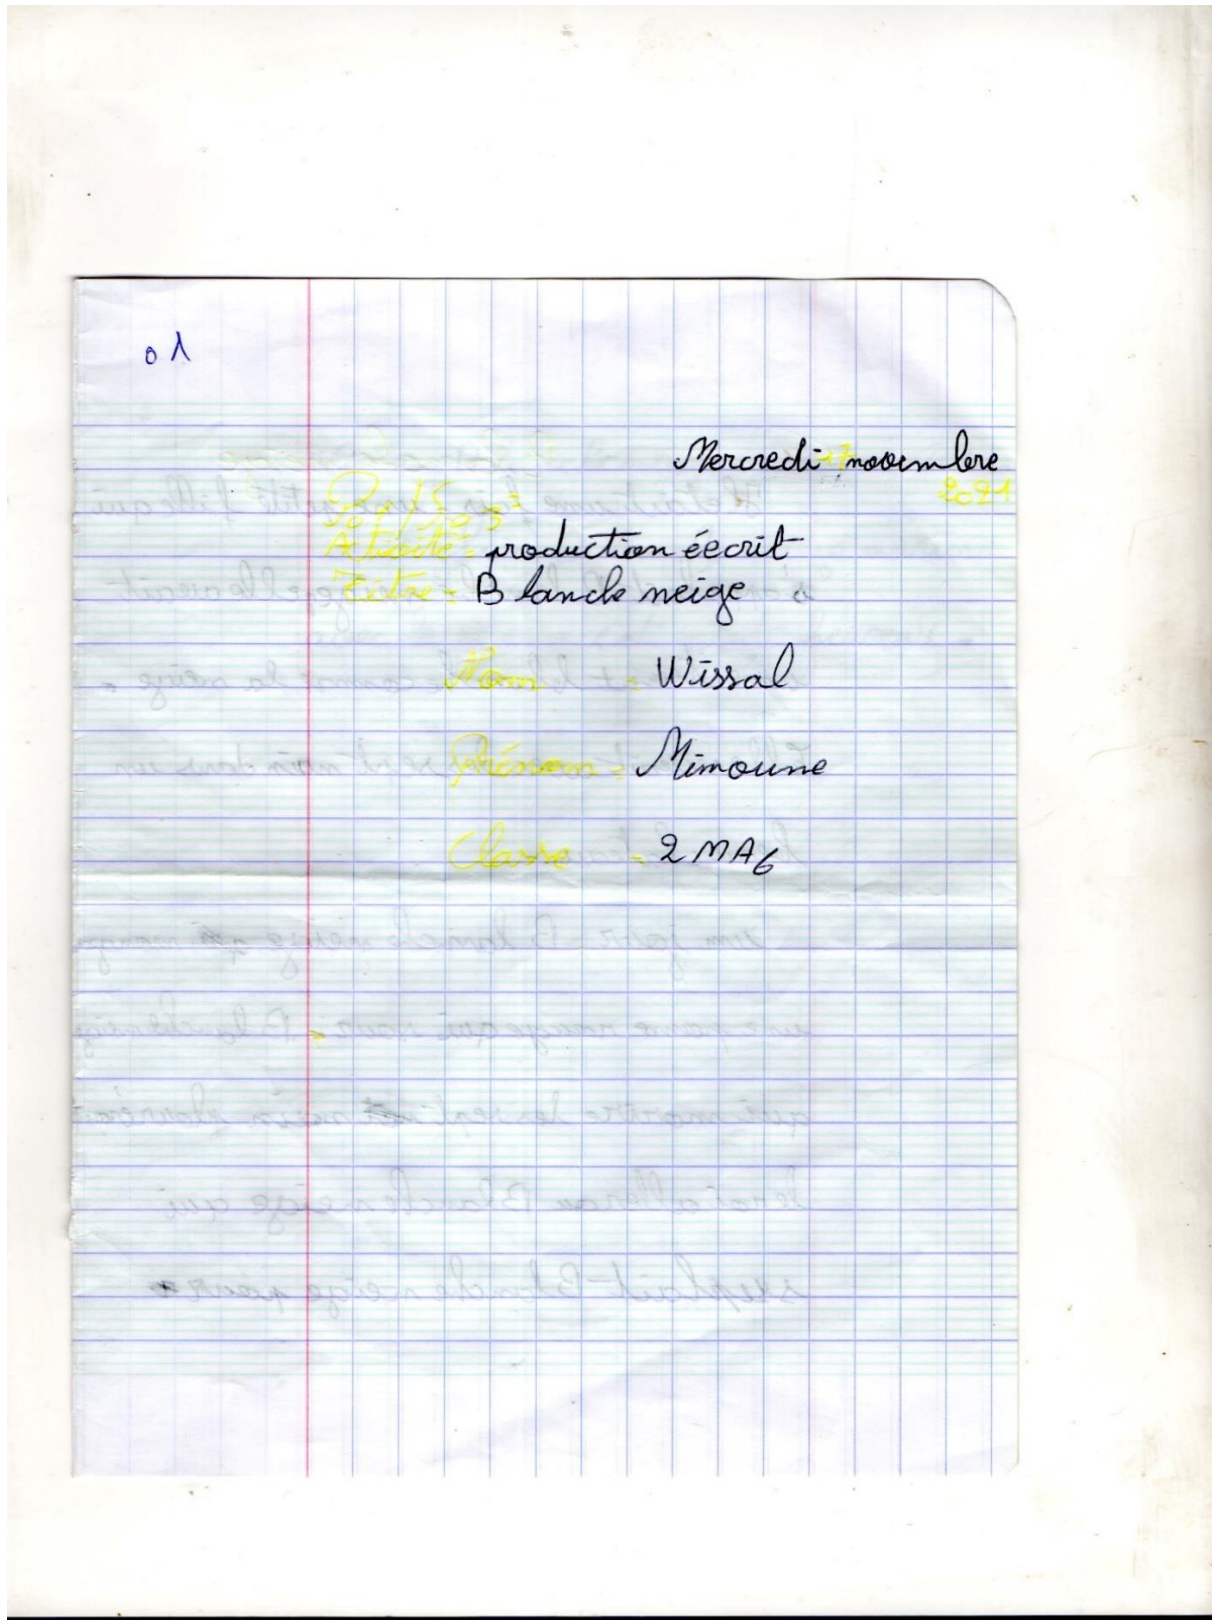 01
Mercredi 17 novembre
2021
P01/S03
Activité = production éecrit
Titre = Blanche neige
Nom = Wissal
Prénom = Mimoune
Classe = 2 MA6